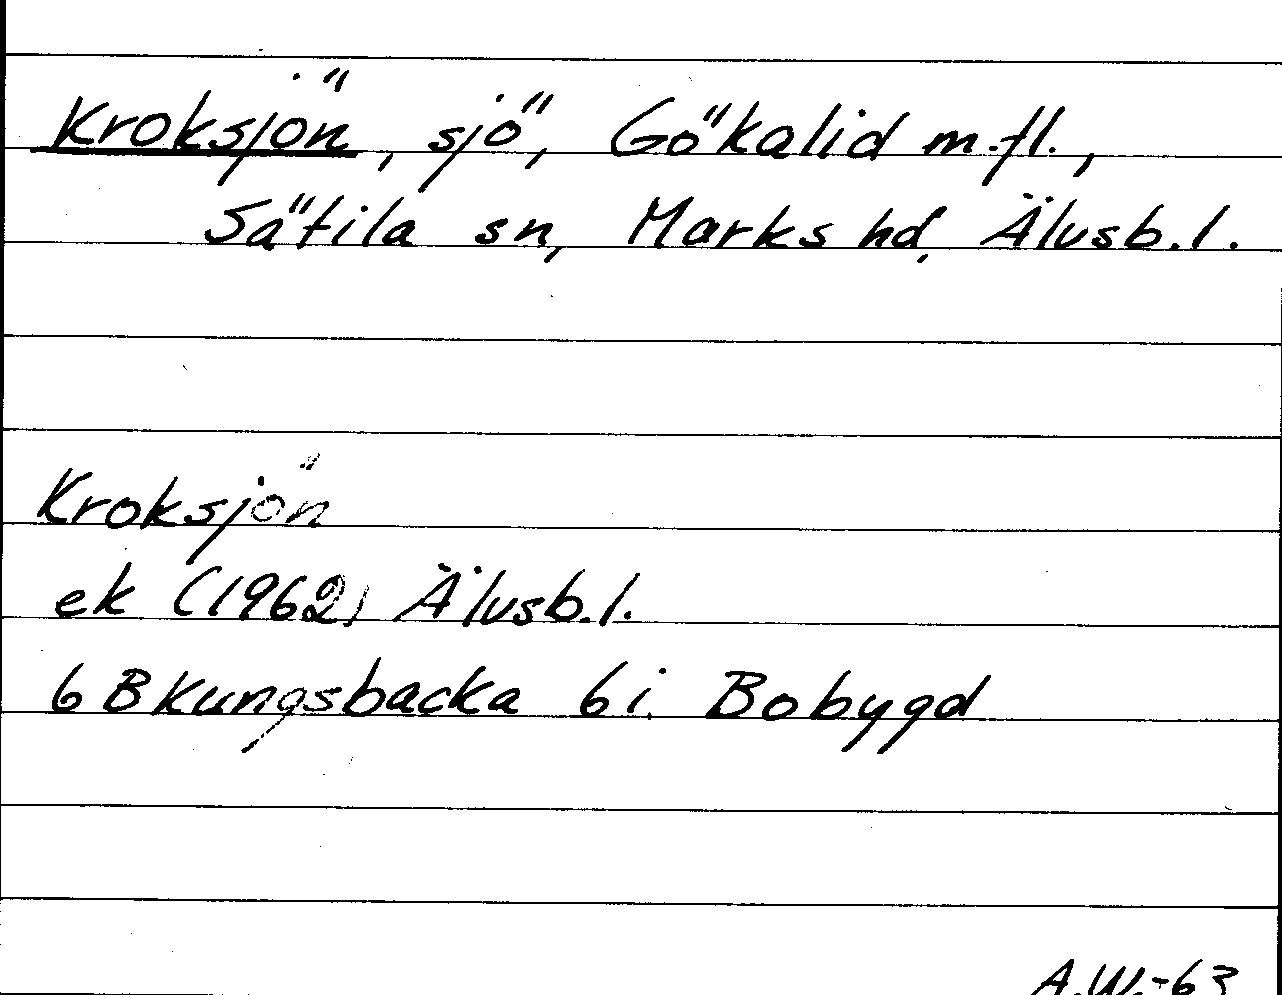 Kroksjön, sjö, Gökalid m.fl.,
Sätila sn, Marks hd, Älvsb.l.
Kroksjön
ek (1962) Älvsb.l.
6 B Kungsbacka 6 i Bobygd
A.W.-63